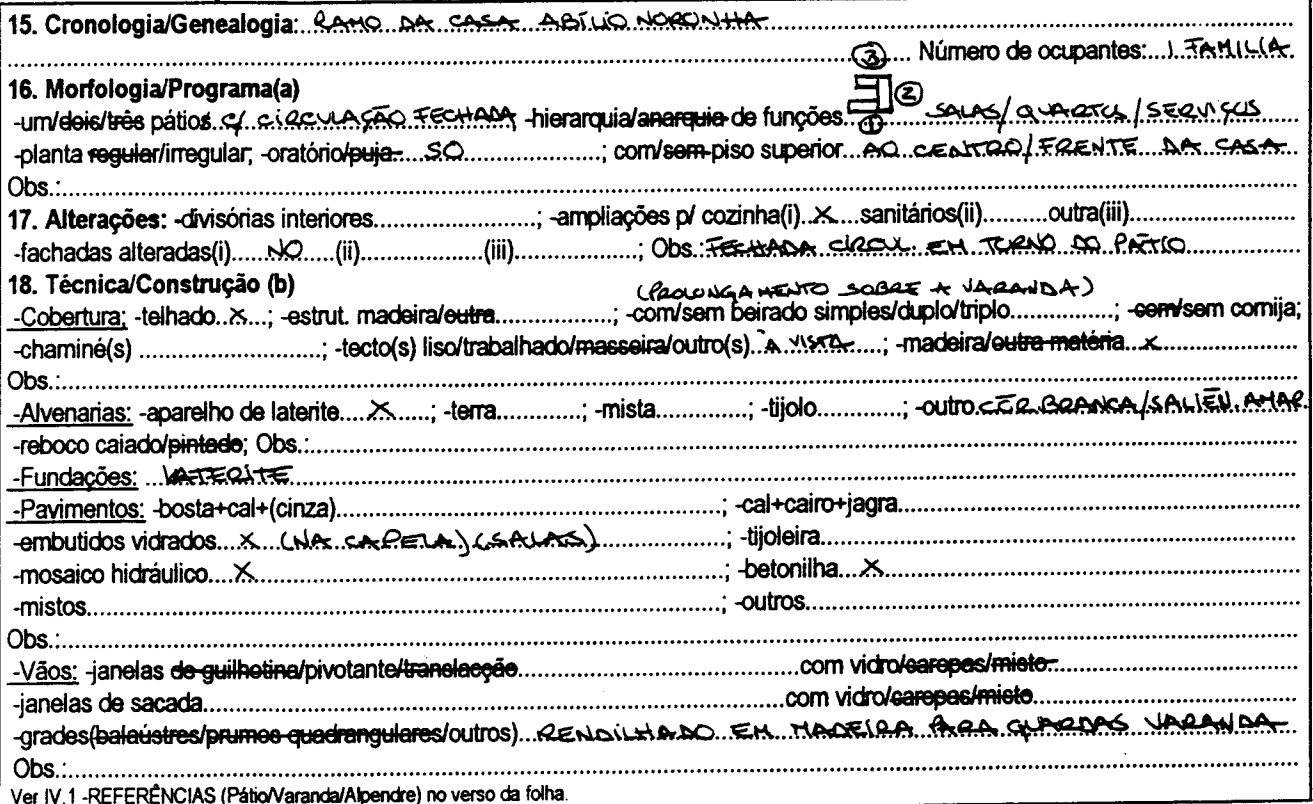 15. Cronologia/Genealogia: RAMO DA CASA ABÍLIO NORONHA
③ Número de ocupantes: 1 FAMILIA.
16. Morfologia/Programa(a)
-um/dois/três pátios c/ CIRCULAÇÃO FECHADA -hierarquia/anarquia de funções ① ② SALAS/QUARTOS/SERVIÇOS
-planta regular/irregular; -oratório/puja- SO ; com/sem piso superior AO CENTRO/FRENTE DA CASA
Obs.:
17. Alterações: -divisórias interiores ; -ampliações p/ cozinha(i) X sanitários(ii) outra(iii)
-fachadas alteradas(i) NO (ii) (iii) ; Obs: FECHADA CIRCUL. EM TORNO DO PÁTIO
18. Técnica/Construção (b) (PROLONGAMENTO SOBRE A VARANDA)
-Cobertura; -telhado X ; -estrut. madeira/outra ; -com/sem beirado simples/duplo/triplo ; -com/sem cornija;
-chaminé(s) ; -tecto(s) liso/trabalhado/masseira/outro(s) À VISTA ; -madeira/outra matéria X
Obs.:
-Alvenarias: -aparelho de laterite X ; -terra ; -mista ; -tijolo ; -outro CÔR BRANCA/SALIÊN. AMAR.
-reboco caiado/pintado; Obs.:
-Fundações: LATERITE
-Pavimentos: -bosta+cal+(cinza) ; -cal+cairo+jagra
-embutidos vidrados X (NA CAPELA) (SALAS) ; -tijoleira
-mosaico hidráulico X ; -betonilha X
-mistos ; -outros
Obs.:
-Vãos: -janelas de guilhotina/pivotante/translacção com vidro/carepas/misto
-janelas de sacada com vidro/carepas/misto
-grades(balaústres/prumos quadrangulares/outros) RENDILHADO EM MADEIRA PARA GUARDAS VARANDA
Obs.:
Ver IV.1 -REFERÊNCIAS (Pátio/Varanda/Alpendre) no verso da folha.